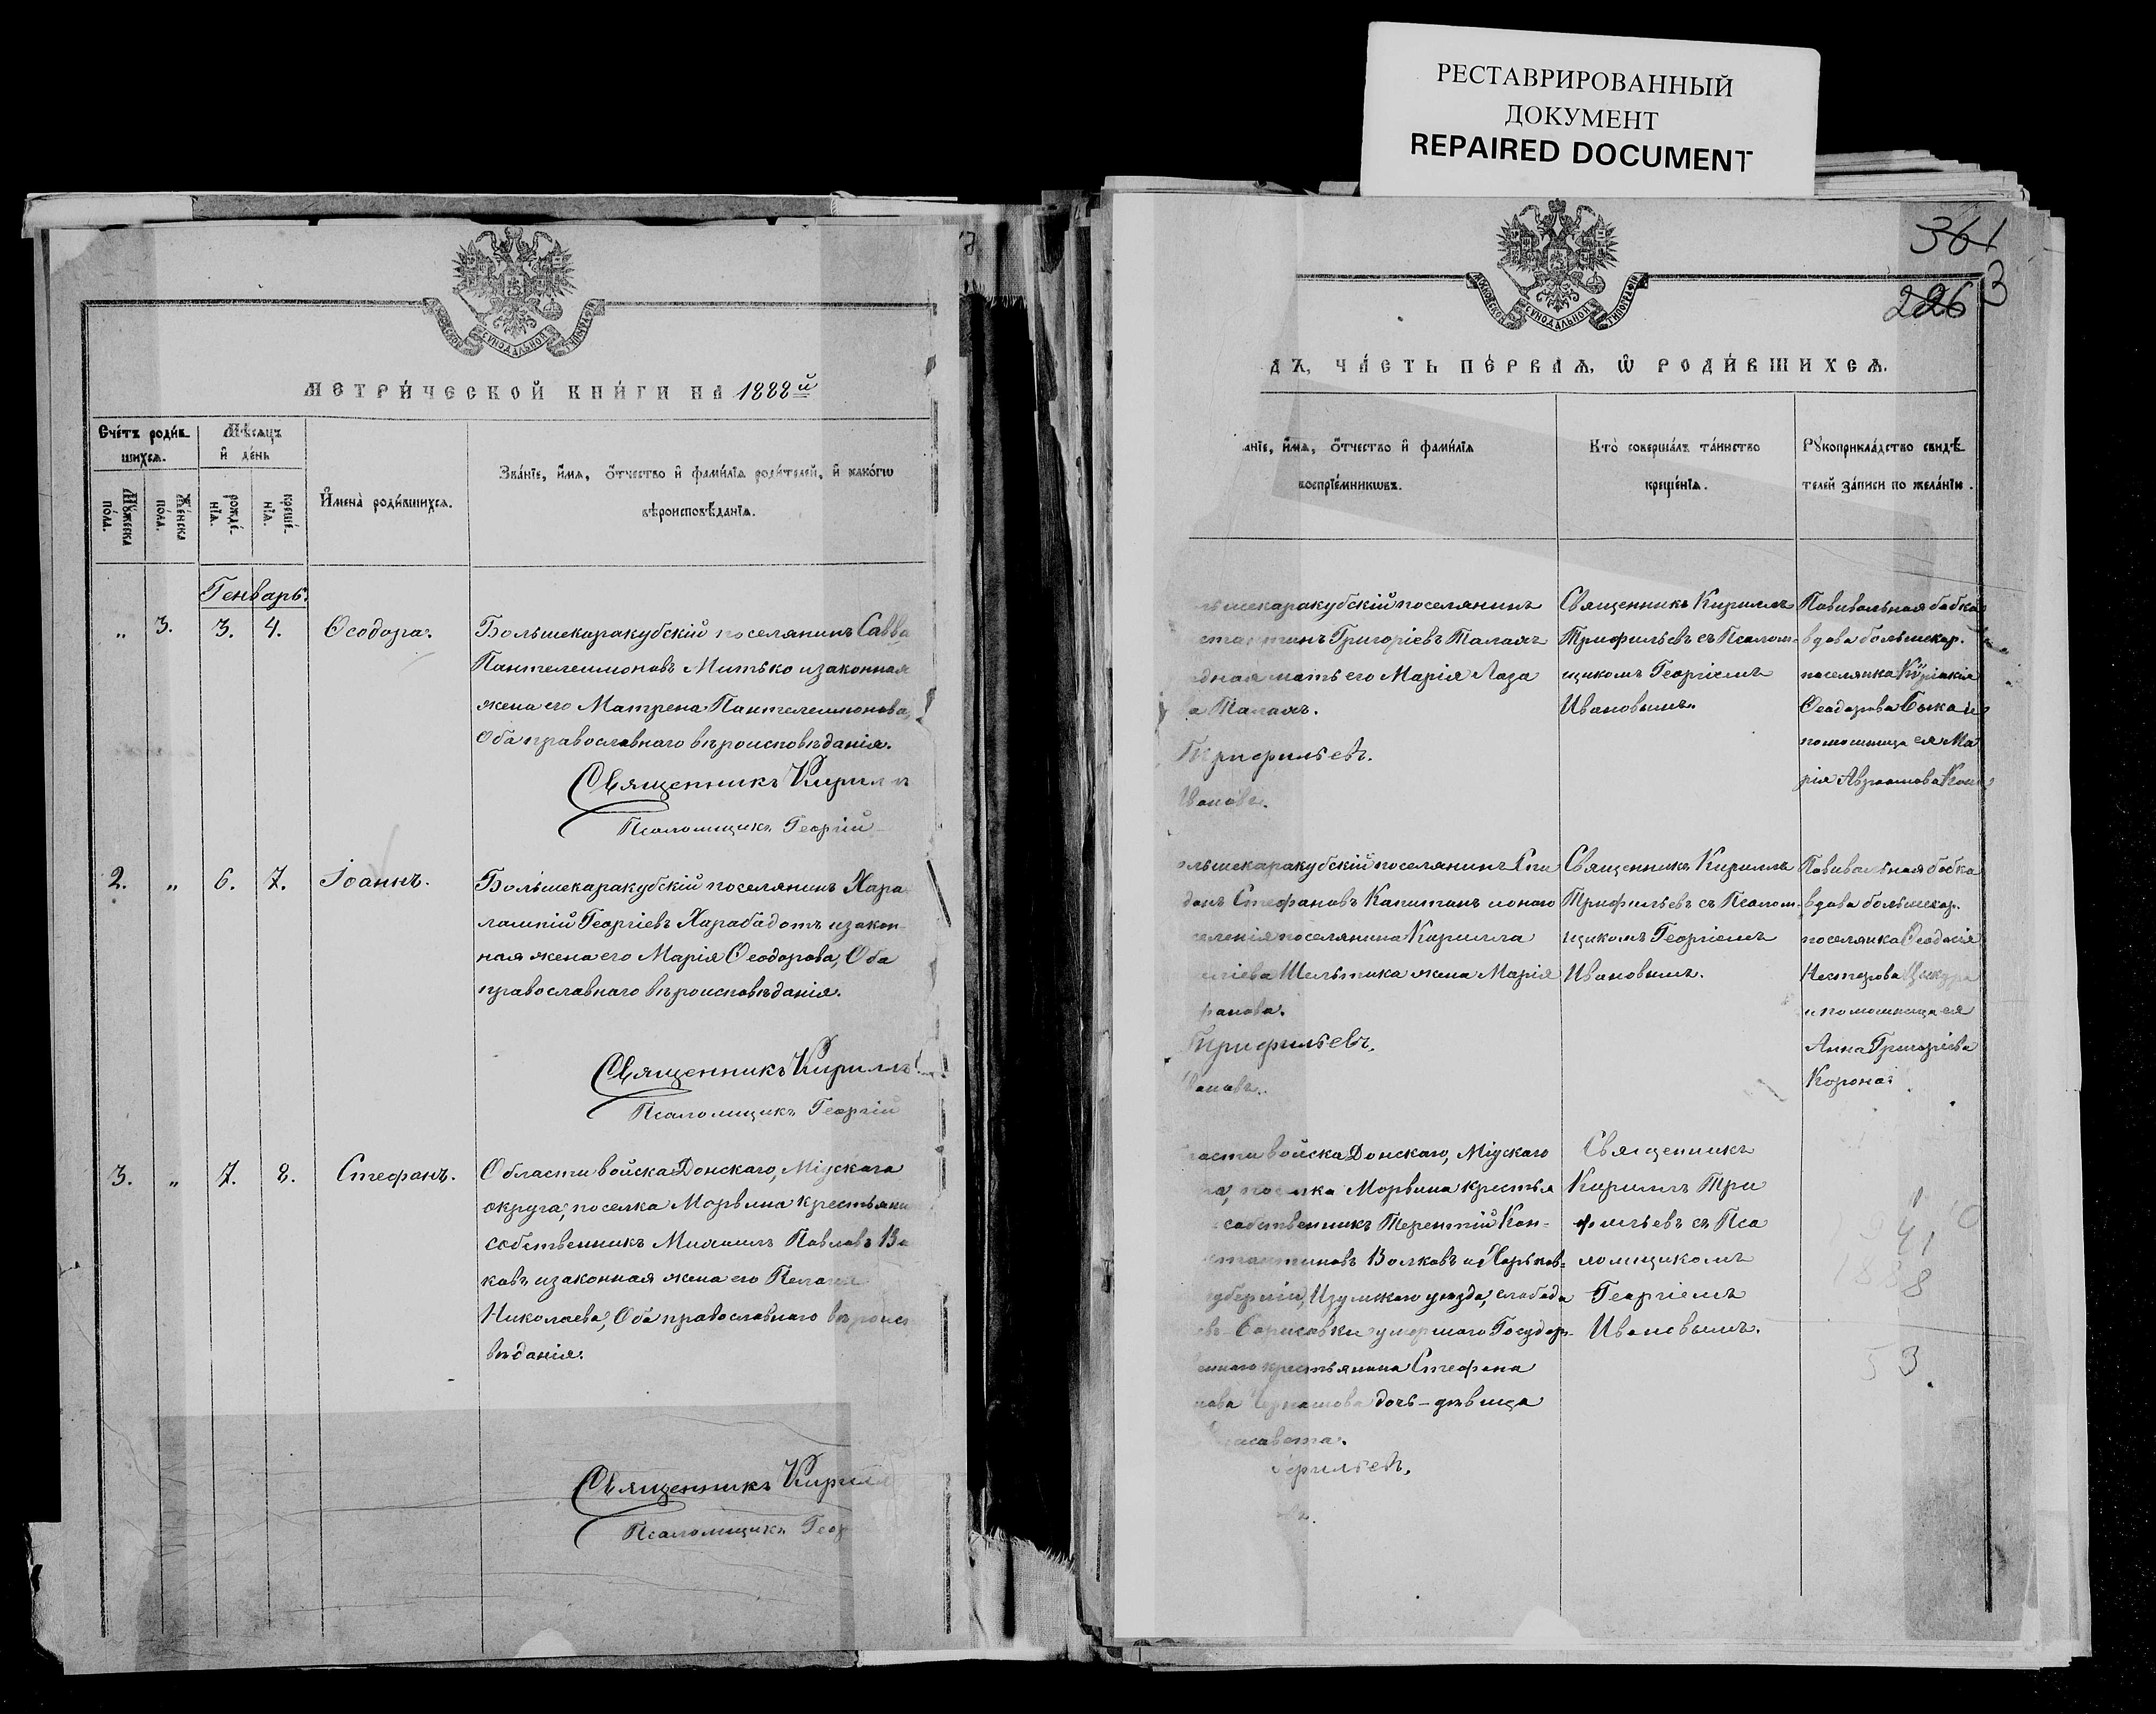 РЕСТАВРИРОВАННЫЙ
ДОКУМЕНТ
REPAIRED DOCUMENT
МОСКОВСКОЙ СѴНОДАЛЬНОЙ ТИПОГРАФІИ
МЕТРИ́ЧЕСКОЙ КНИ́ГИ НА 1888й
Сче́тъ роди́в-
шихсѧ.
Мѣ́сѧцъ
и҆ де́нь
Мꙋ́жеска
по́ла.
Же́нска
по́ла.
рожде́-
нїѧ.
креще́-
нїѧ.
И҆мена̀ роди́вшихсѧ.
Зва́нїе, и҆́мѧ, ѻ҆́тчество и҆ фами́лїѧ роди́телей, и҆ како́гѡ
вѣроисповѣ́данїѧ.
Генварь.
„ 3. 3. 4. Ѳеодора.
Большекаракубскій поселянинъ Савва
Пантелеимоновъ Митько и законная
жена его Матрена Пантелеимонова,
Оба православнаго вѣроисповѣданія.
Священникъ Кирилл
Псаломщикъ Георгій
2. „ 6. 7. Іоаннъ.
Большекаракубскій поселянинъ Хара
лампій Георгіевъ Харабадотъ и закон
ная жена его Марія Ѳеодорова, Оба
православнаго вѣроисповѣданія.
Священникъ Кириллъ
Псаломщикъ Георгій
3. „ 7. 8. Стефанъ.
Области войска Донскаго, Міускаго
округа, поселка Морвина крестьяни
собственникъ Михаилъ Павловъ Во
ковъ и законная жена его Пелагія
Николаева, Оба православнаго вѣроис
вѣданія.
Священникъ Кирилл
Псаломщикъ Геор
361
226 3
МОСКОВСКОЙ СѴНОДАЛЬНОЙ ТИПОГРАФІИ
ДЪ, ЧА́СТЬ ПЕ́РВАѦ, Ѡ҆ РОДИ́ВШИХСѦ.
анїе, и҆́мѧ, ѻ҆́тчество и҆ фами́лїѧ
воспрїе́мникѡвъ.
Кто̀ соверша́лъ та́инство
креще́нїѧ.
Рꙋкоприкла́дство свидѣ́-
телей за́писи по жела́нїю.
льшекаракубскій поселянинъ
стантинъ Григоріевъ Талахъ
одная мать его Марія Лаза
ва Талахъ.
Трифильевъ.
Ивановъ.
Священникъ Кириллъ
Трифильевъ съ Псалом-
щикомъ Георгіемъ
Ивановымъ.
Повивальная бабка
вдова большекар.
поселянка Кѵріакія
Ѳеодорова
помощница ея Ма
рія
ольшекаракубскій поселянинъ Спи
донъ Стефановъ Капитанъ и онаго
селенія поселянина Кирилла
Шельтика жена Марія
фанова.
Трифильевъ.
Ивановъ.
Священникъ Кириллъ
Трифильевъ съ Псалом-
щикомъ Георгіемъ
Ивановымъ.
Повивальная бабка
вдова большекар.
поселянка Ѳеодосія
Нестерова
и помощница ея
Анна Григоріева
Корона.
ласти войска Донскаго, Міускаго
га, поселка Морвина крестья
собственникъ Терентій Кон-
стантиновъ Волковъ и Харьков-
губерніи, Изумскаго уѣзда, слобода
Борисовки умершаго Государ-
еннаго крестьянина Стефана
дочь-дѣвица
исавета.
фильевъ.
Священникъ
Кириллъ Три
фильевъ съ Пса
ломщикомъ
Георгіемъ
Ивановымъ.
41
1888
53